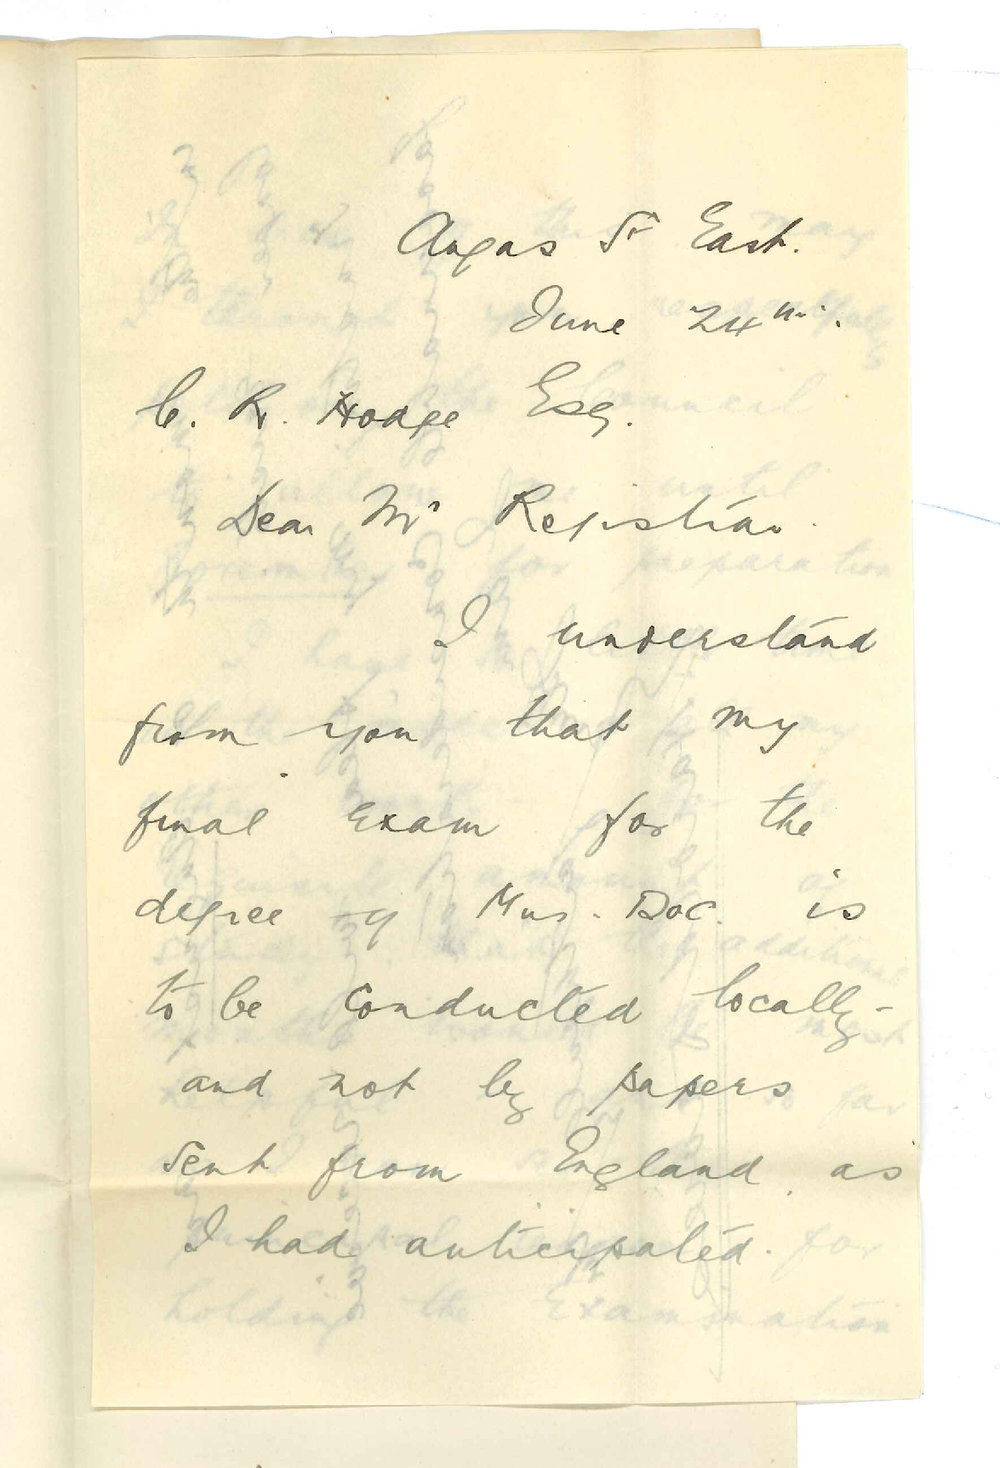 Angas St East.
June 24th.
C. R. Hodge Esq.
Dear Mr Registrar.
I understand
from you that my
final Exam for the
degree of Mus. Doc. is
to be conducted locally-
and not by papers
sent from England as
I had anticipated.